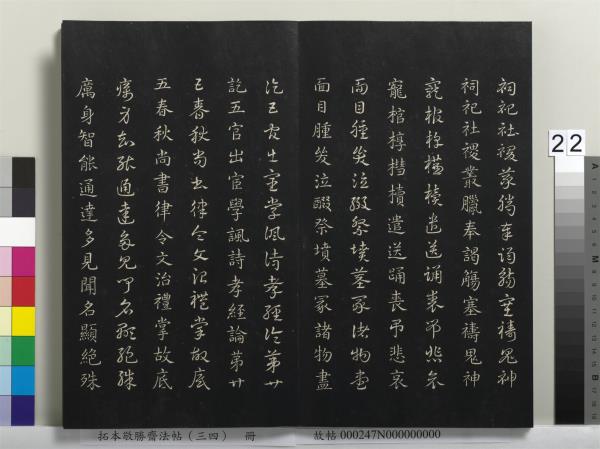 祠祀社稷叢臘奉謁觴塞禱鬼神
祠祀社稷叢臘奉謁觴塞禱鬼神
寵棺椁槥櫝遣送踊喪弔悲哀
寵棺椁槥櫝遣送踊喪弔悲哀
面目腫泣醊祭墳墓冢諸物盡
面目腫泣醊祭墳墓冢諸物盡
訖五官出宦學諷詩孝經論第廿
訖五官出宦學諷詩孝經論第廿
五春秋尚書律令文治禮掌故底
五春秋尚書律令文治禮掌故底
厲身智能通達多見聞名顯絕殊
厲身智能通達多見聞名顯絕殊
22
拓本敬勝齋法帖（三四） 冊
故帖 000247N000000000